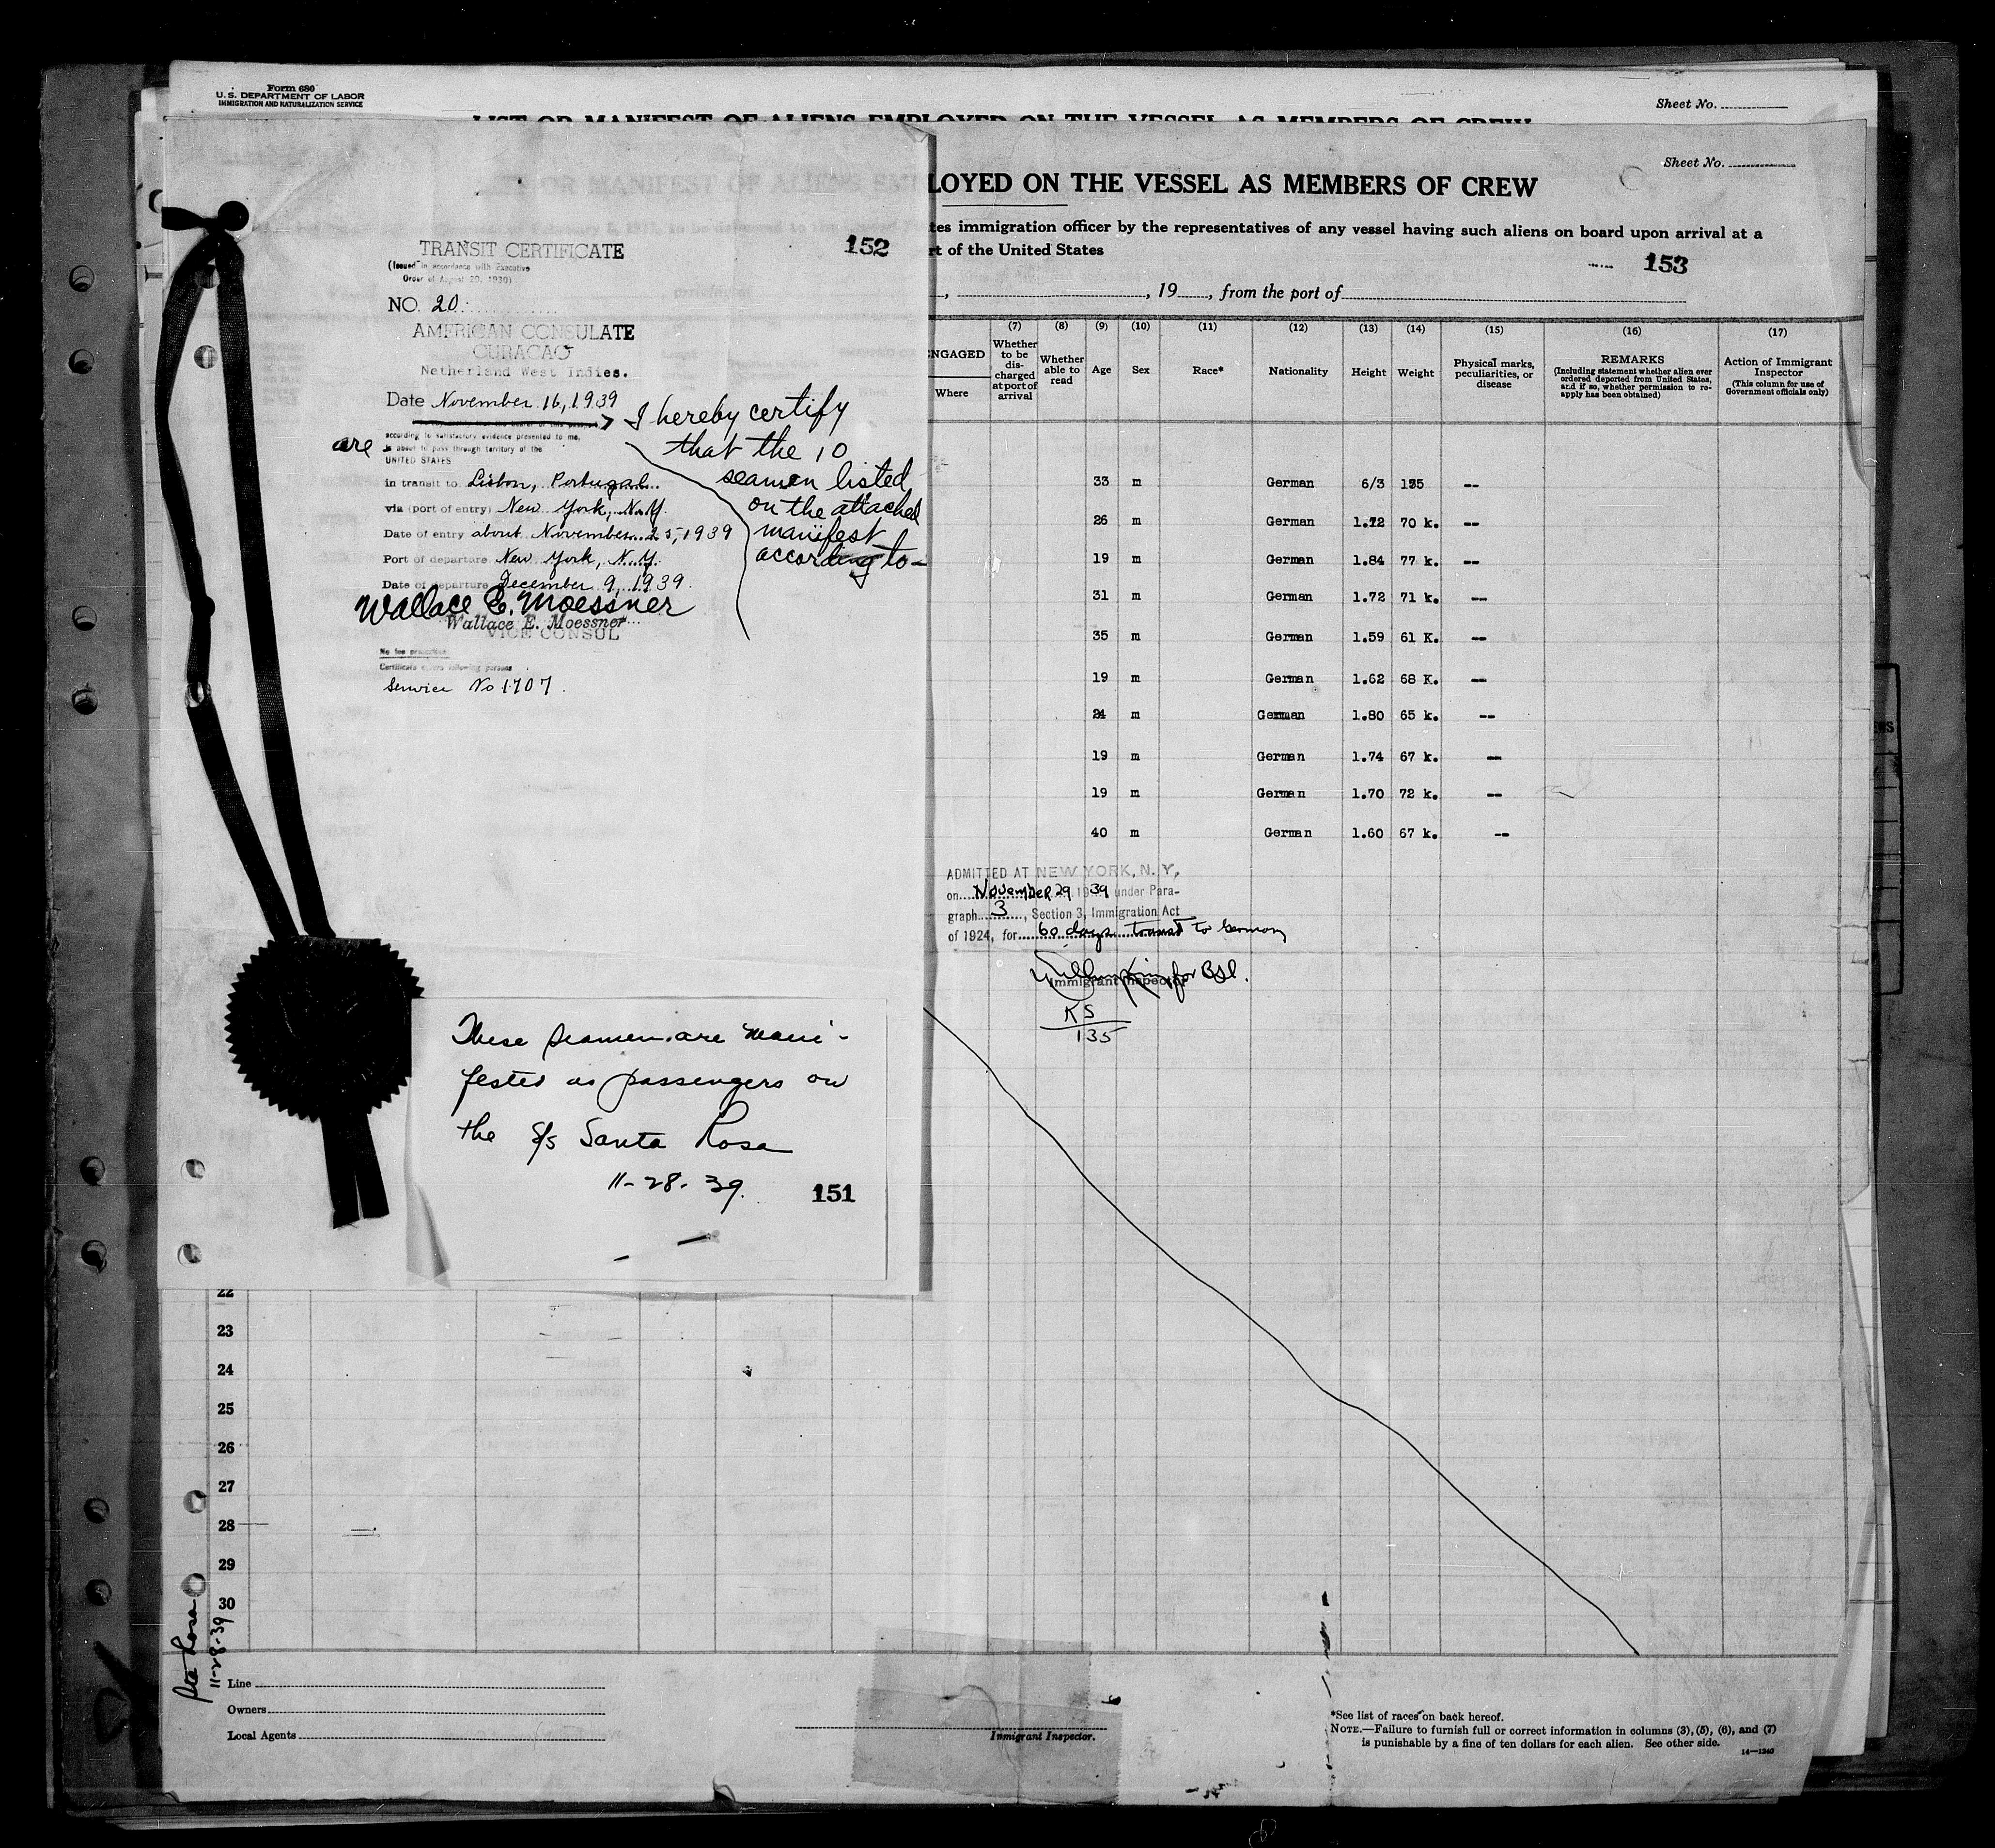 Form 680
U.S. DEPARTMENT OF LABOR
IMMIGRATION AND NATURALIZATION SERVICE
Sheet No.
LIST OR MANIFEST OF ALIENS EMPLOYED ON THE VESSEL AS MEMBERS OF CREW
TRANSIT CERTIFICATE
(Issued in accordance with Executive
Order of August 20, 1930)
152
NO. 20.
AMERICAN CONSULATE
CURACAO
Netherland West Indies.
Date November 16, 1939
I hereby certify
that the 10
seamen listed
on the attached
manifest
according to
according to satisfactory evidence presented to me,
are is about to pass through territory of the
UNITED STATES
in transit to Lisbon, Portugal
via (port of entry) New York, N.Y.
Date of entry about November 25, 1939
Port of departure New York, N.Y.
Date of departure December 9, 1939.
Wallace E. Moessner
Wallace E. Moessner
VICE CONSUL
No fee prescribed
Certificate covers following persons
Service No 1707.
These seamen are mani-
fested as passengers on
the S/S Santa Rosa
11-28-39.
151
Sheet No.
LOYED ON THE VESSEL AS MEMBERS OF CREW
tes immigration officer by the representatives of any vessel having such aliens on board upon arrival at a
rt of the United States
153
, , 19 , from the port of
NGAGED
Where
(7) Whether to be dis-charged at port of arrival
(8) Whether able to read
(9) Age
(10) Sex
(11) Race*
(12) Nationality
(13) Height
(14) Weight
(15) Physical marks, peculiarities, or disease
(16) REMARKS (Including statement whether alien ever ordered deported from United States, and if so, whether permission to re-apply has been obtained)
(17) Action of Immigrant Inspector (This column for use of Government officials only)
33 m German 6/3 --
26 m German 1.72 70 k. --
19 m German 1.84 77 k. --
31 m German 1.72 71 k. --
35 m German 1.59 61 K. --
19 m German 1.62 68 K. --
24 m German 1.80 65 k. --
19 m German 1.74 67 k. --
19 m German 1.70 72 k. --
40 m German 1.60 67 k. --
ADMITTED AT NEW YORK, N. Y.
on November 29 1939 under Para-
graph 3, Section 3, Immigration Act
of 1924, for 60 days transit to Germany
for BSI.
Immigrant Inspector
KS
135
22
23
24
25
26
27
28
29
30
Sta Rosa
11-28-39
Line
Owners
Local Agents
Immigrant Inspector.
*See list of races on back hereof.
NOTE.—Failure to furnish full or correct information in columns (3), (5), (6), and (7)
is punishable by a fine of ten dollars for each alien. See other side.
14—1240